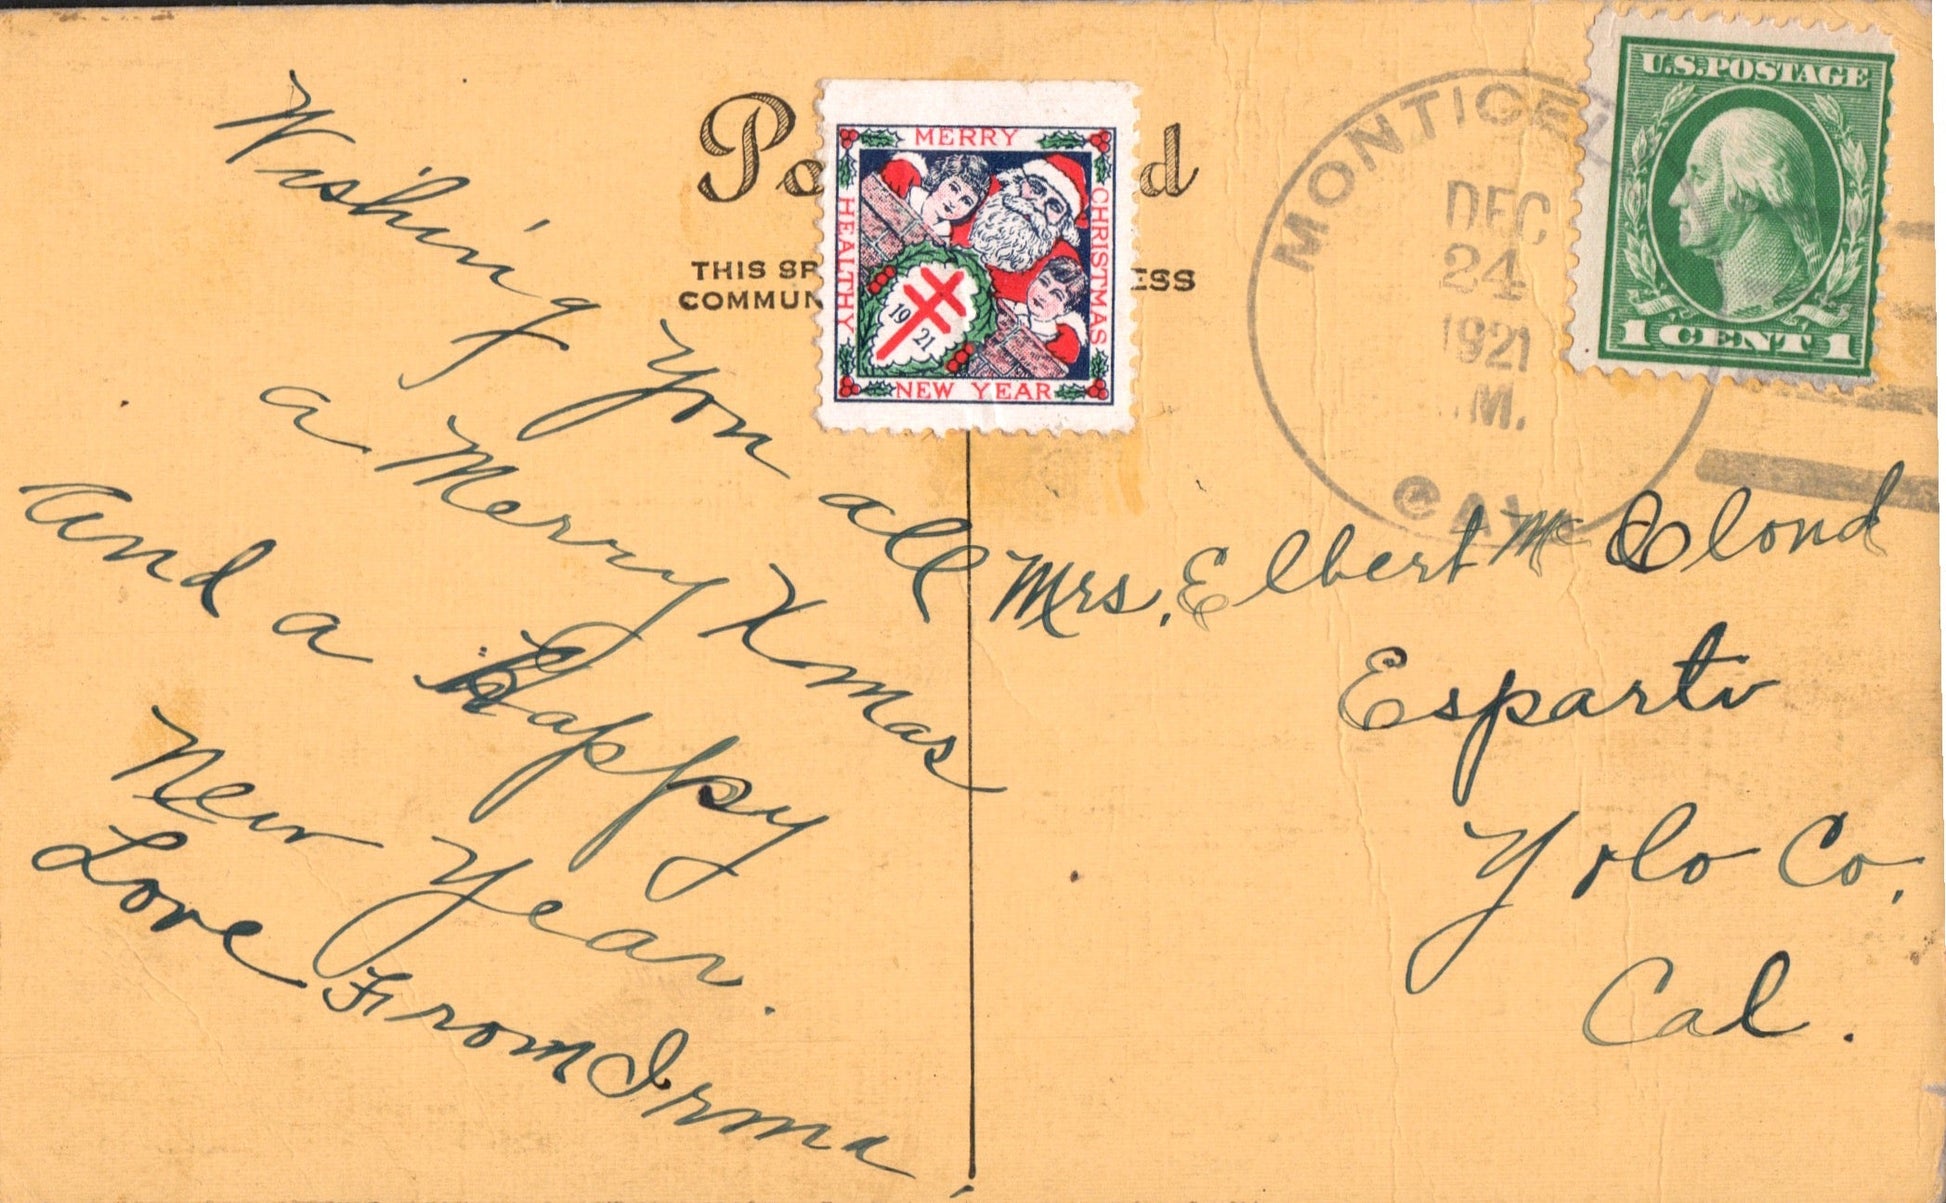 Wishing you all
a Merry Xmas
And a Happy
New Year.
Love From Irma
Po d
THIS SP ESS
COMMUN
MERRY
CHRISTMAS
HEALTHY
NEW YEAR
1921
MONTICEL
DEC
24
1921
M.
CAL
U.S.POSTAGE
1 CENT 1
Mrs. Elbert McCloud
Esparto
Yolo Co.
Cal.